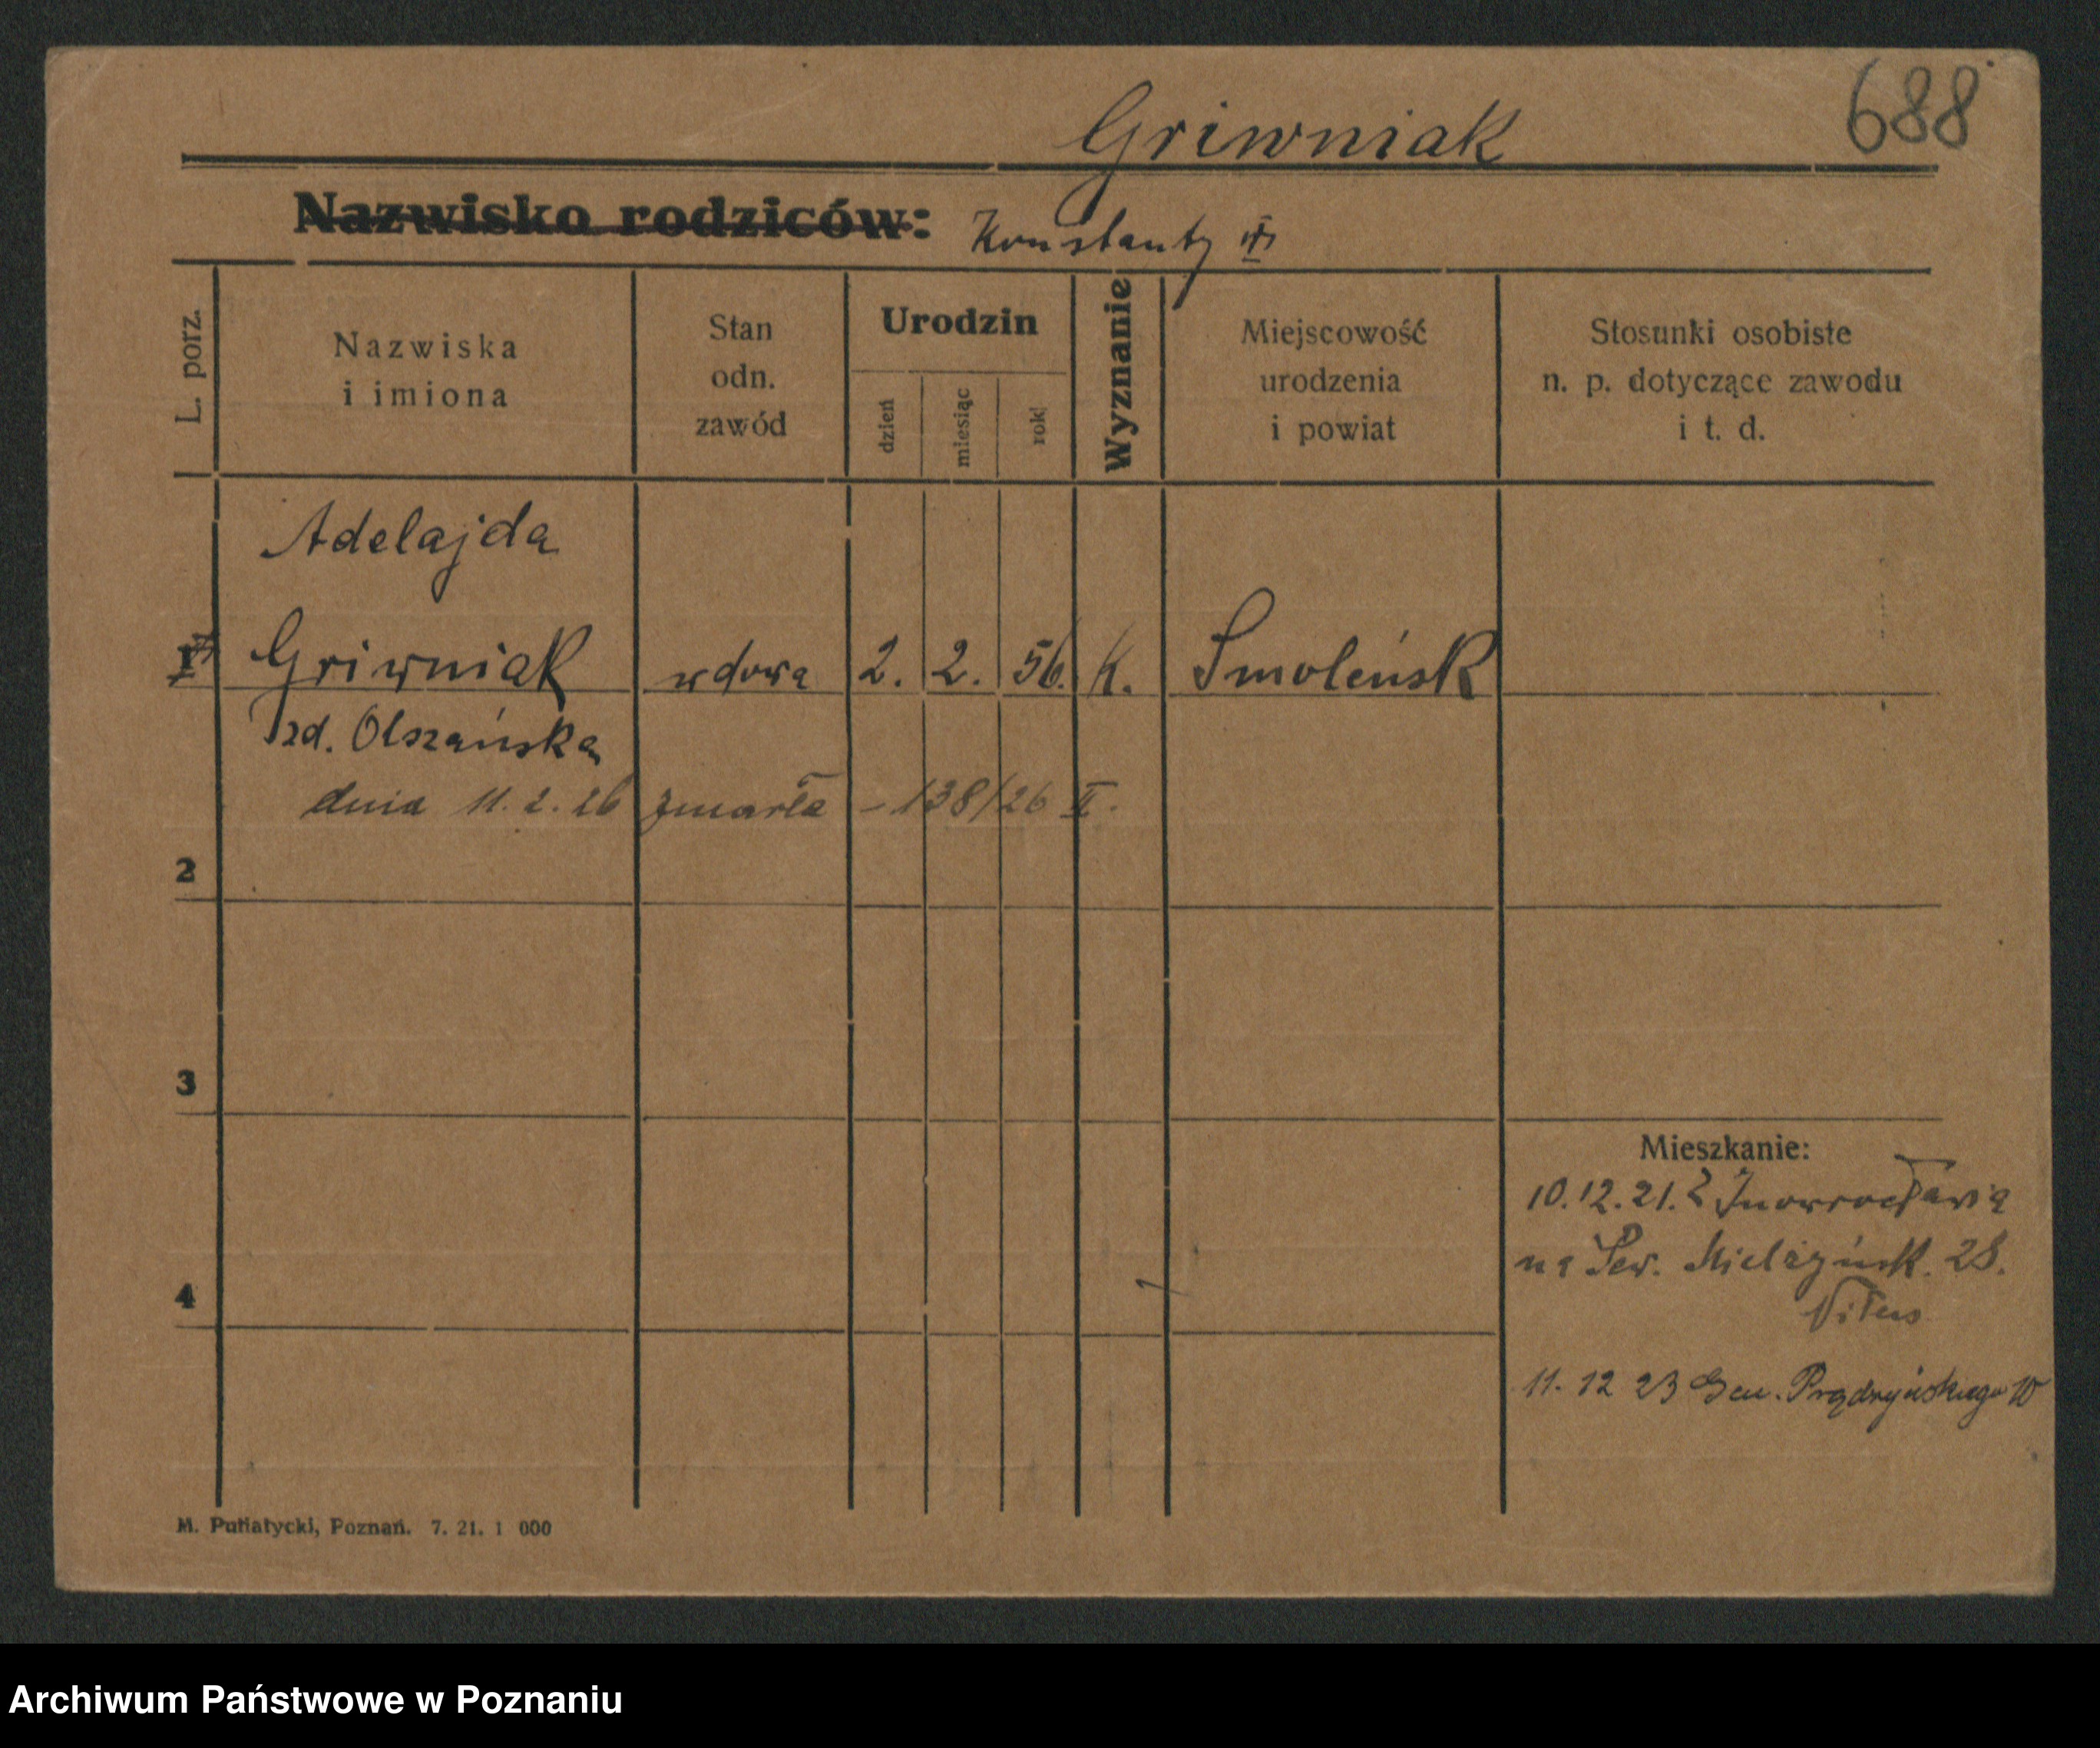 688
Griwniak
Nazwisko rodziców: Konstanty
L. porz.
Nazwiska i imiona
Stan odn. zawód
Urodzin
dzień
miesiąc
rok
Wyznanie
Miejscowość urodzenia i powiat
Stosunki osobiste n. p. dotyczące zawodu i t. d.
Adelajda
1 Griwniak wdowa 2. 2. 56. K. Smoleńsk
zd. Olszańska
dnia 11.2.26 zmarła – 138/26 II.
2
3
4
Mieszkanie:
10.12.21. Z Inowrocławia
na Sew. Mielżyńsk. 28.
11. 12 23 Gen. Prądzyńskiego
M. Putiatycki, Poznań. 7. 21. 1 000
Archiwum Państwowe w Poznaniu